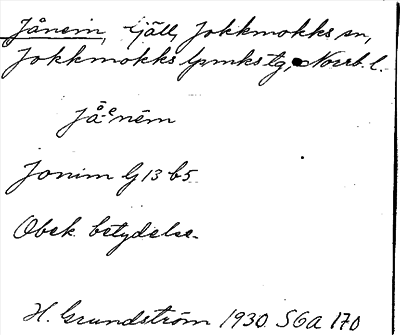 Jånem, fjäll, Jokkmokks sn,
Jokkmokks lpmks tg, Norrb. l.
jå͂-ᵉnēm
Jonim G 13 b5
Obek. betydelse.
H. Grundström 1930 SGA 170